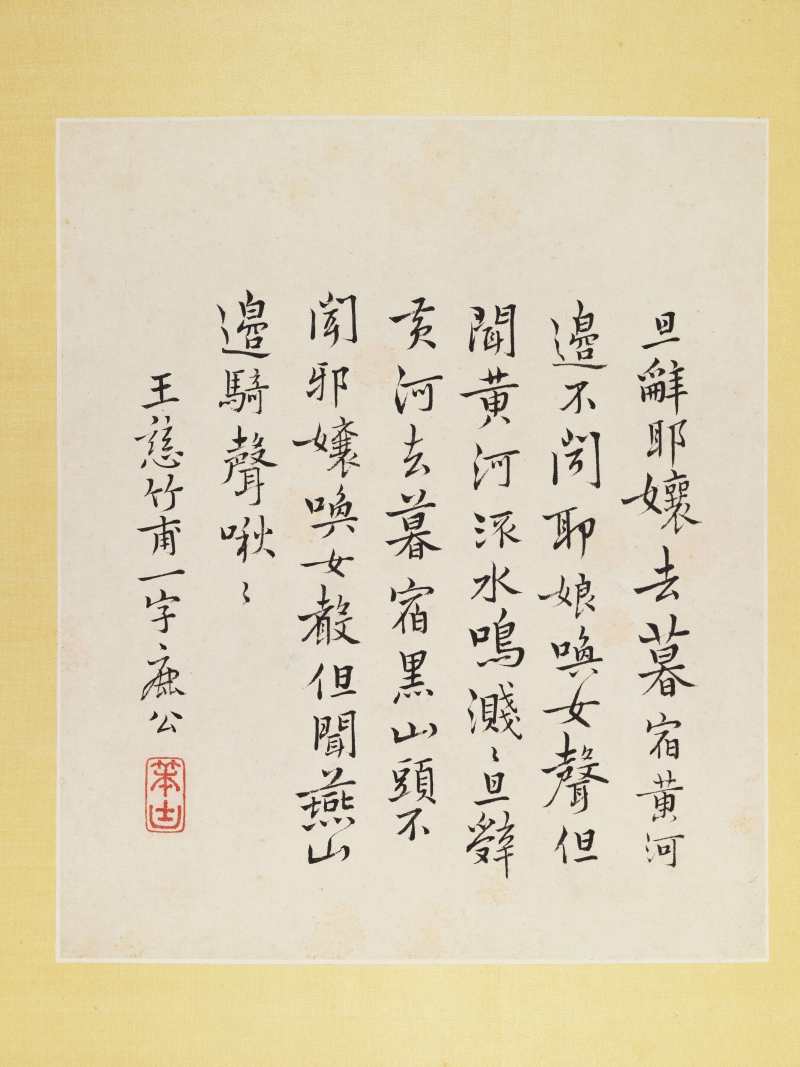 旦辭耶孃去暮宿黄河
邉不聞耶娘喚女聲但
聞黃河流水鳴濺〻旦辭
黄河去暮宿黑山頭不
聞邪孃喚女聲但聞燕山
邉騎聲啾〻
王慈竹甫一字鹿公
笨古